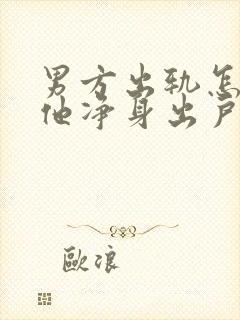 男方出轨怎
他净身出户
歐浪